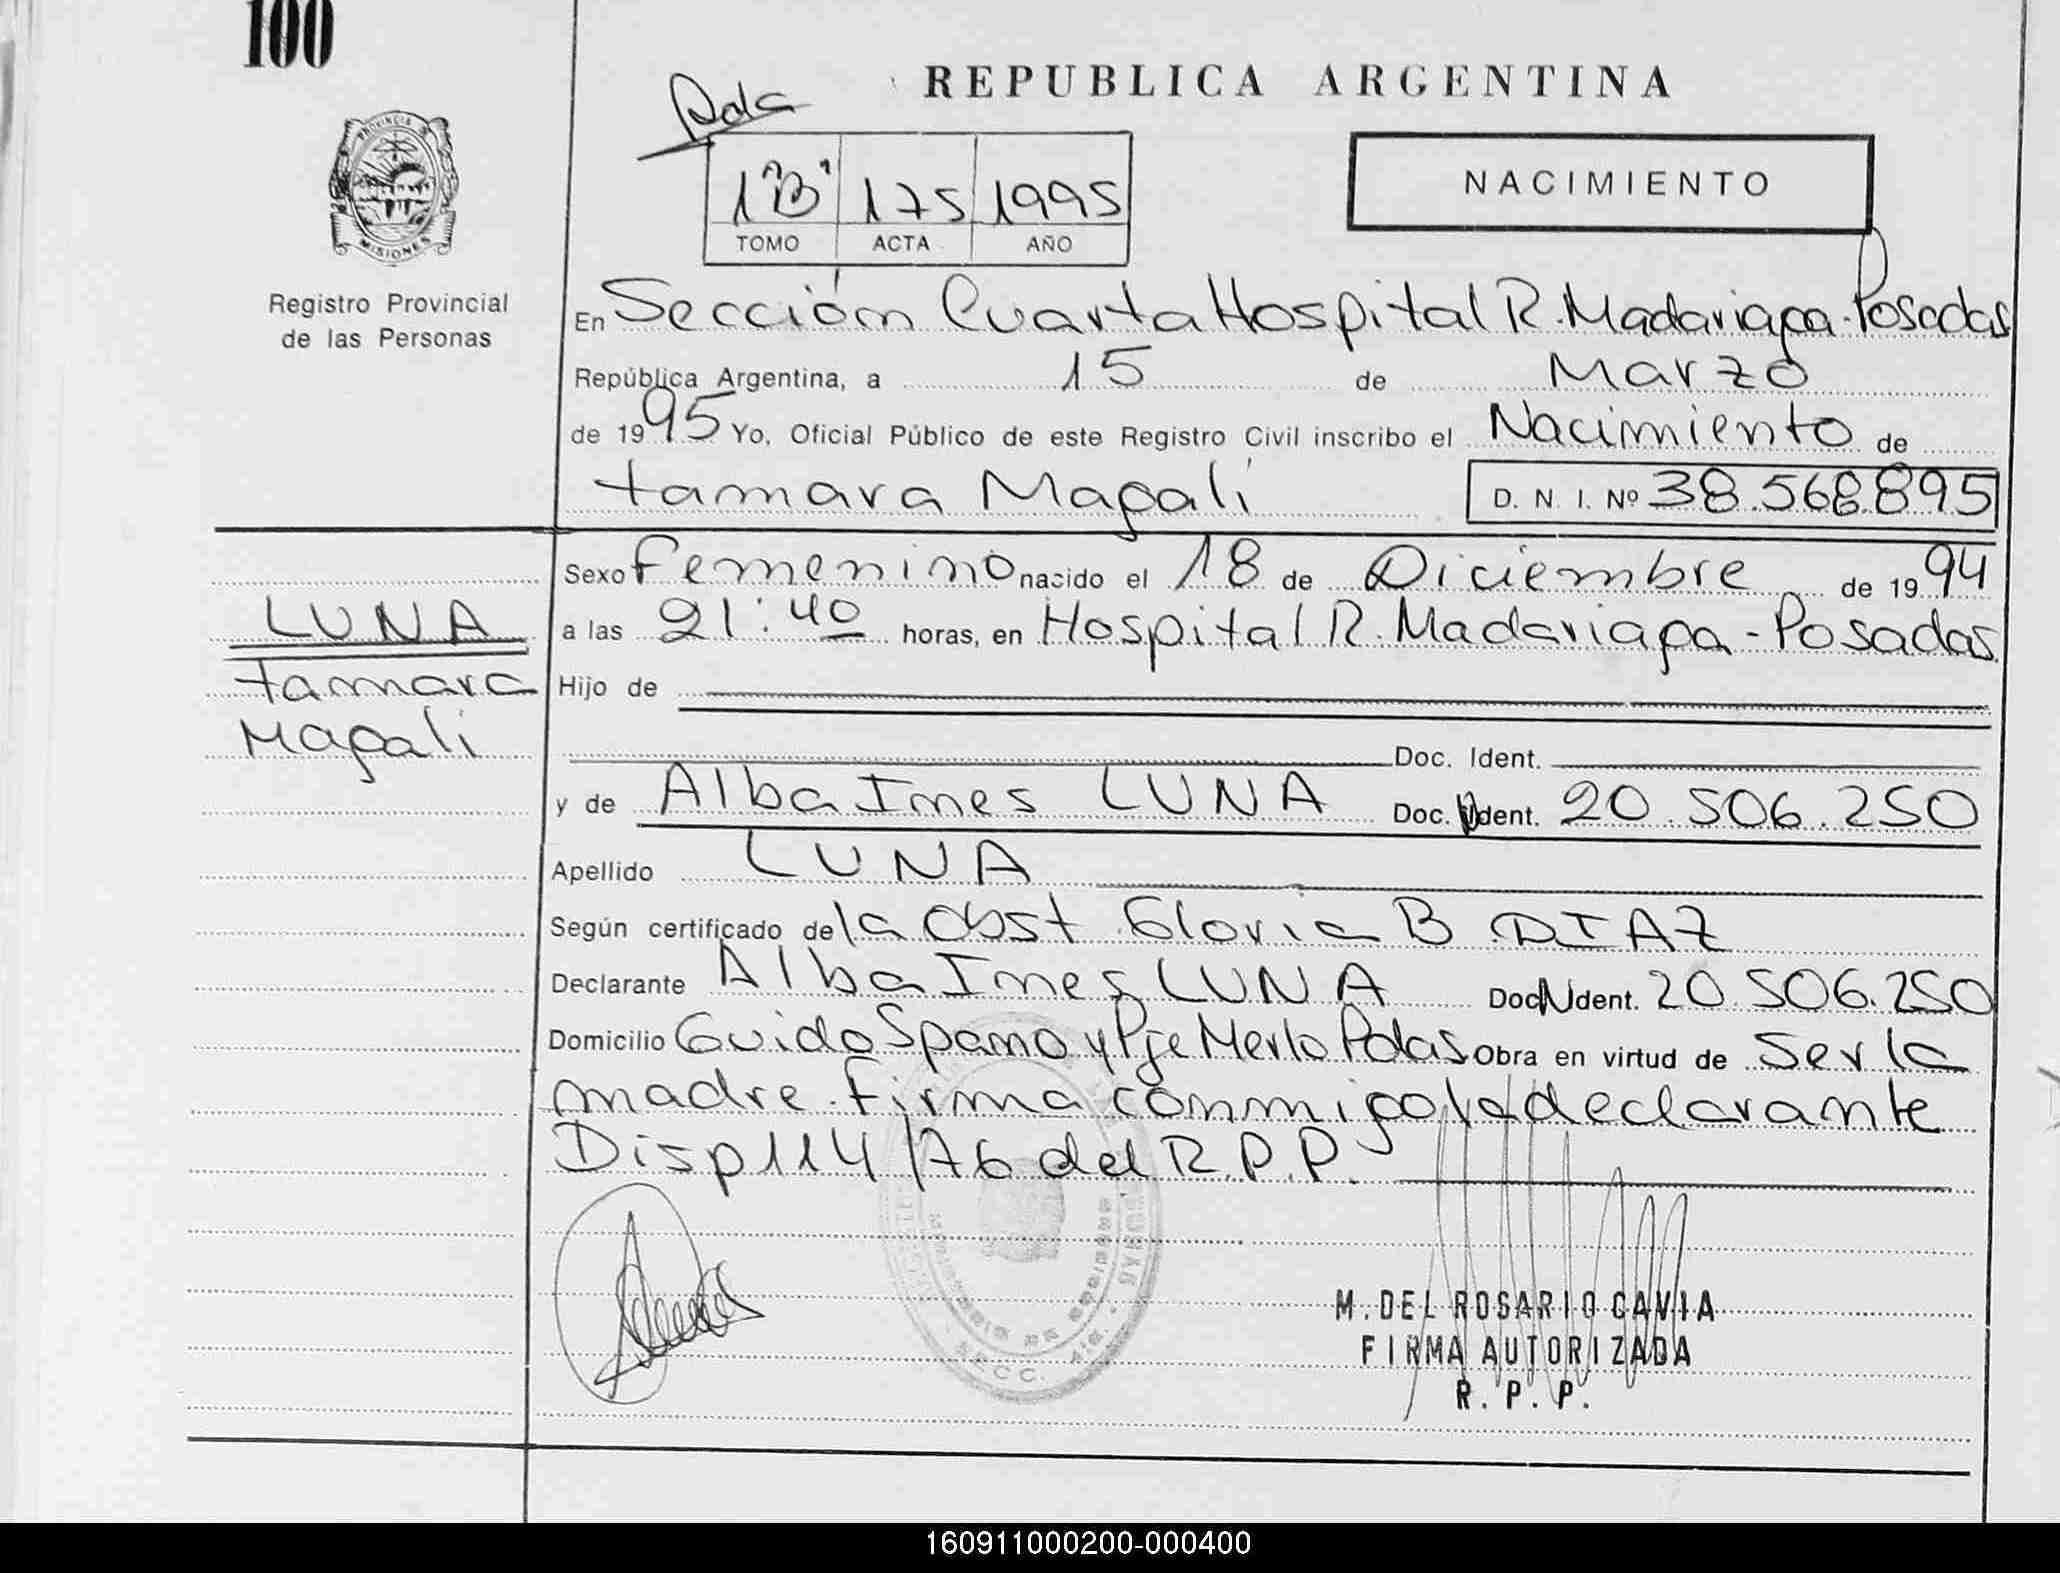 100
REPUBLICA ARGENTINA
Pdas
1 "B" 175 1995
TOMO ACTA AÑO
NACIMIENTO
PROVINCIA DE
MISIONES
Registro Provincial
de las Personas
En Sección Cuarta Hospital R. Madariaga - Posadas
República Argentina, a 15 de Marzo
de 1995 Yo, Oficial Público de este Registro Civil inscribo el Nacimiento de
Tamara Magali D. N. I. Nº 38.568.895
Sexo Femenino nacido el 18 de Diciembre de 1994
LUNA
a las 21:40 horas, en Hospital R. Madariaga - Posadas
Tamara
Hijo de
Magali
Doc. Ident.
y de Alba Ines LUNA Doc. Ident. 20.506.250
Apellido LUNA
Según certificado de la Obst Gloria B DIAZ
Declarante Alba Ines LUNA Doc Ident. 20.506.250
Domicilio Guido Spano y Pje Merlo Pdas Obra en virtud de Ser la
madre. Firma conmigo la declarante
Disp 114/76 del R.P.P.
M. DEL ROSARIO GAVIA
FIRMA AUTORIZADA
R. P. P.
160911000200-000400